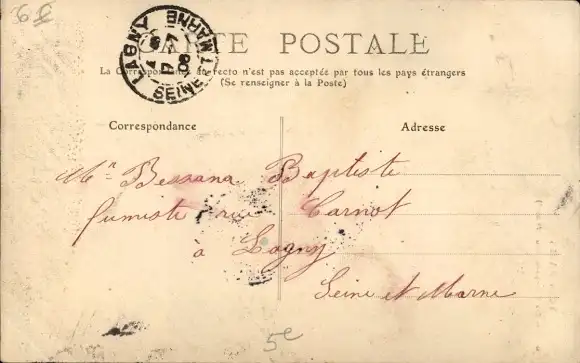 6 €
LAGNY
SEINE-ET-MARNE
CARTE POSTALE
La Correspondance au recto n'est pas acceptée par tous les pays étrangers
(Se renseigner à la Poste)
Correspondance
Adresse
Mr Bessana Baptiste
fumiste rue Carnot
à Lagny
Seine et Marne
5€